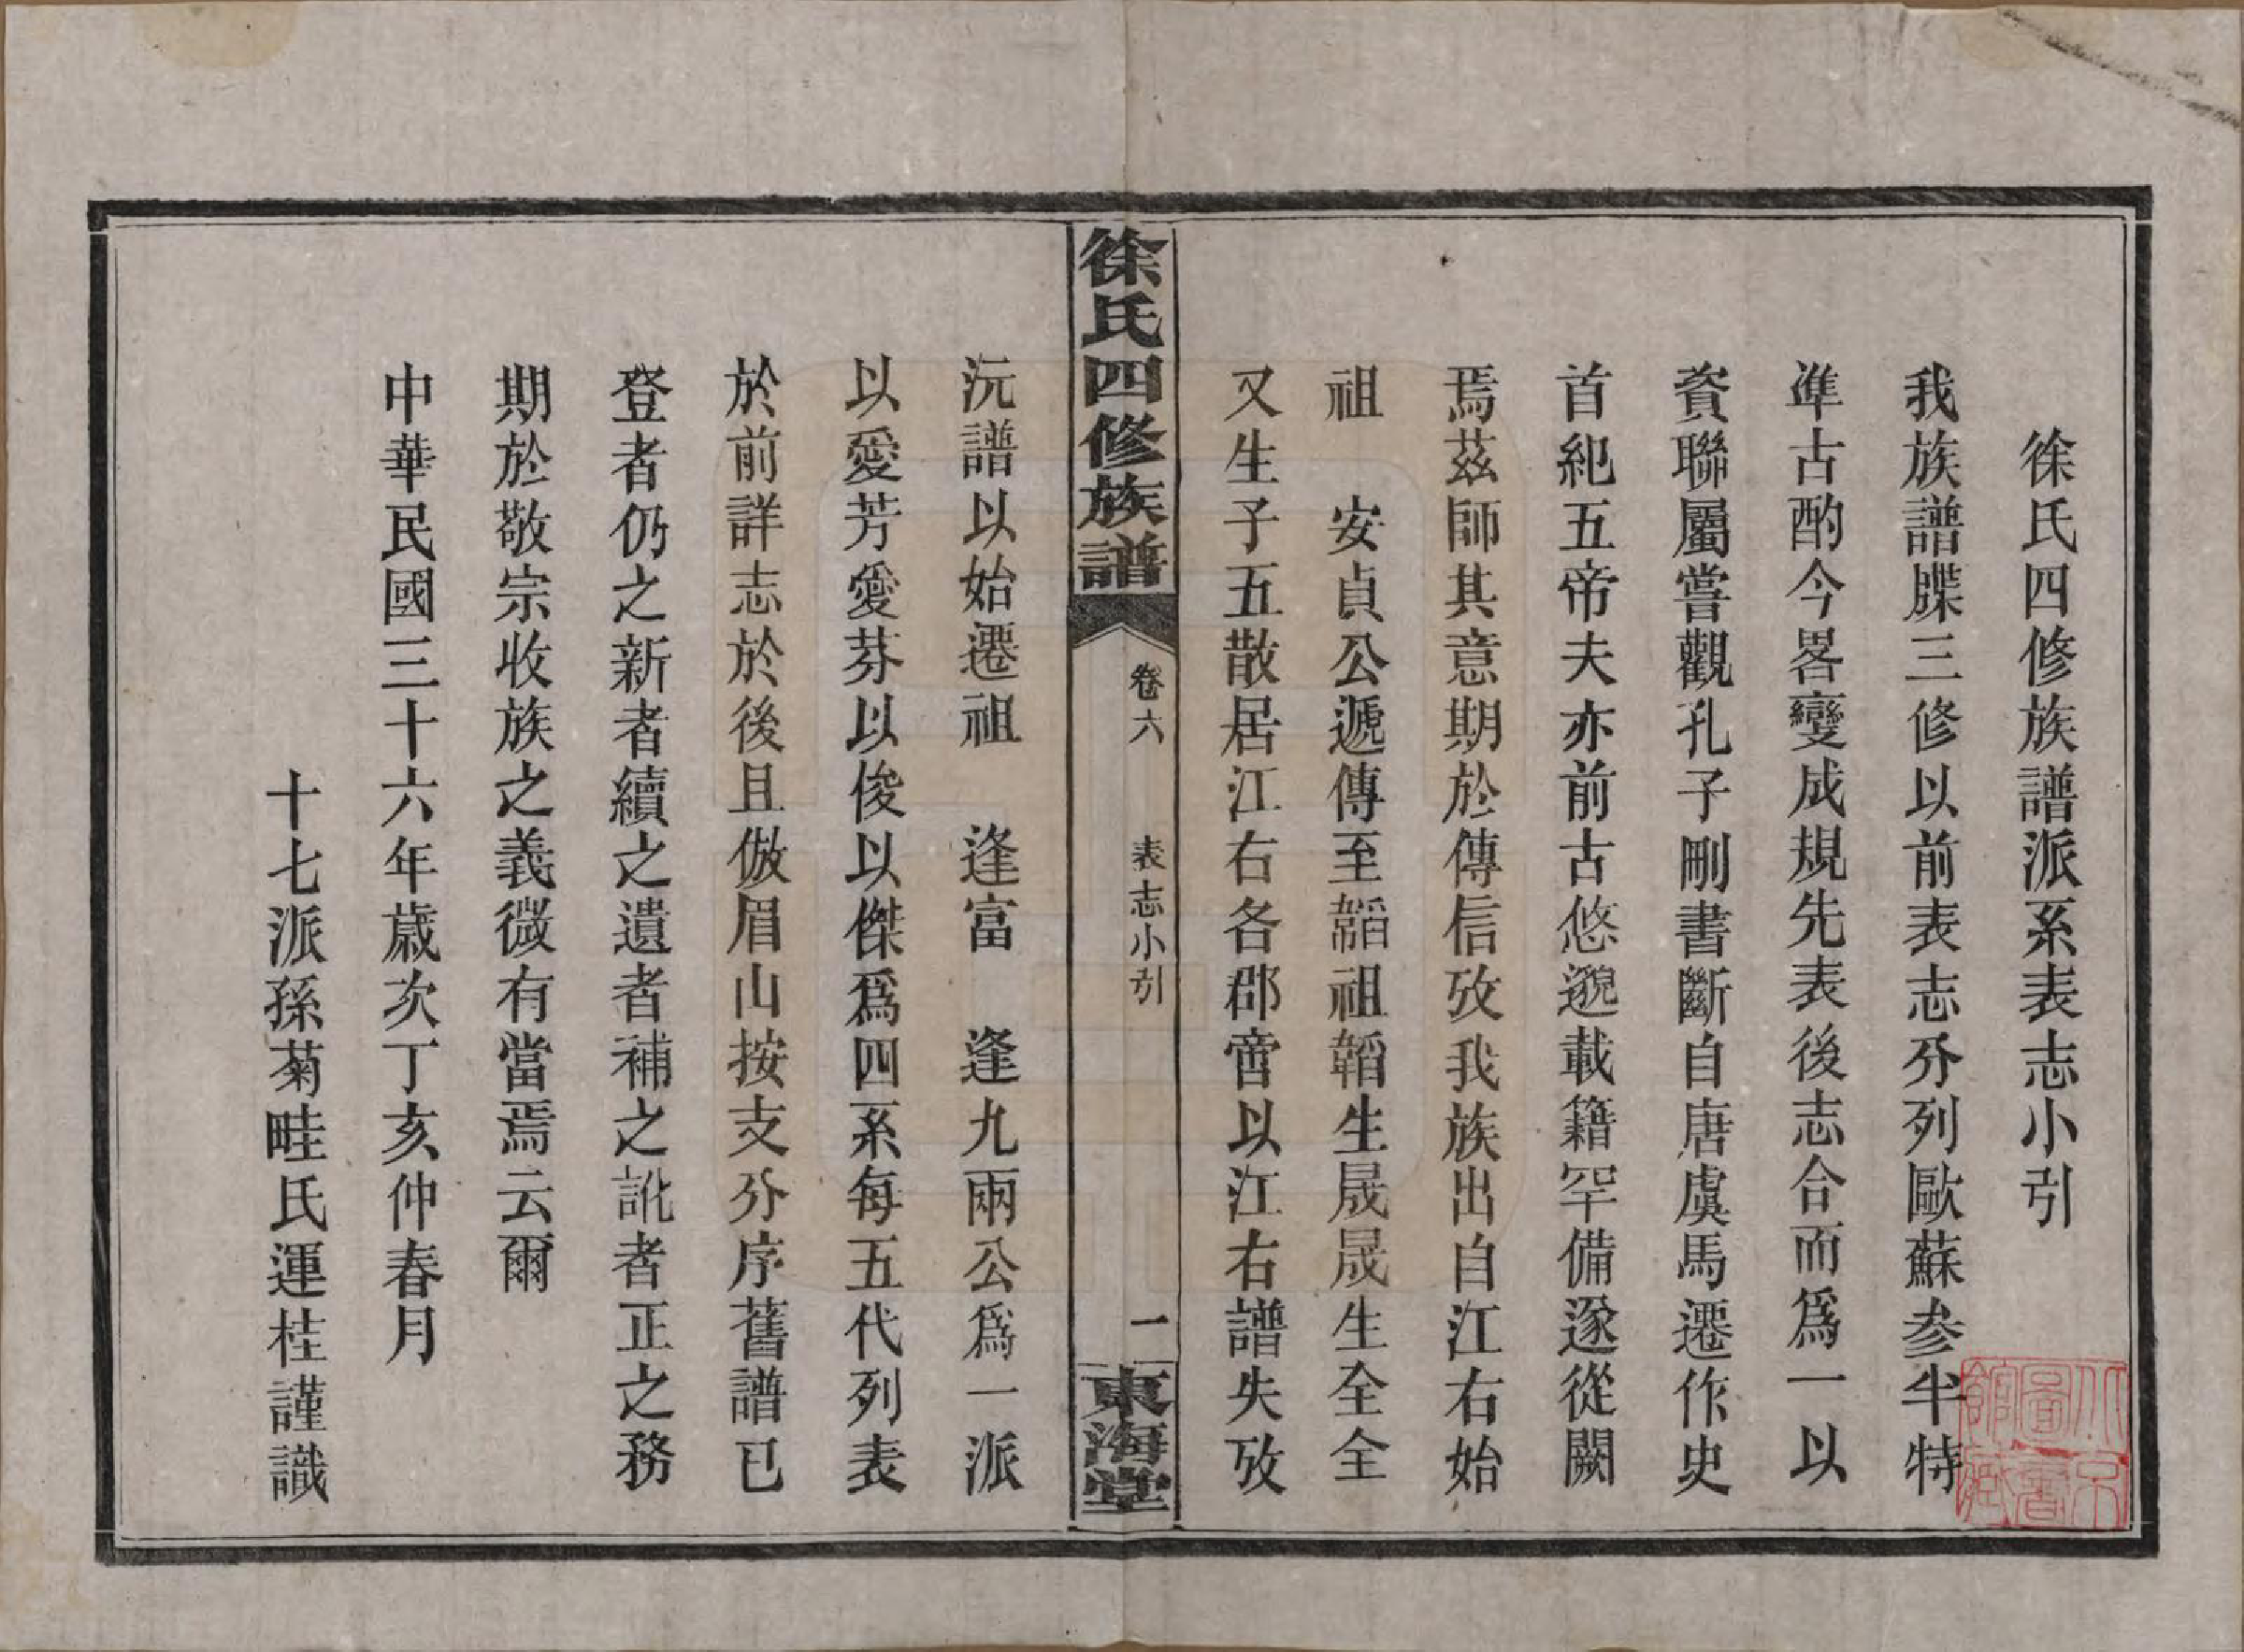 徐氏四修族譜派系表志小引
我族譜牒三修以前表志分列歐蘇參半特
準古酌今畧變成規先表後志合而爲一以
資聯屬嘗觀孔子刪書斷自唐虞馬遷作史
首紀五帝夫亦前古悠邈載籍罕備遂從闕
焉茲師其意期於傳信攷我族出自江右始
祖　安貞公遞傳至韜祖韜生晟晟生全全
又生子五散居江右各郡啻以江右譜失攷
徐氏四修族譜
卷六
表志小引
一
東海堂
沅譜以始遷祖　逢富　逢九兩公爲一派
以愛芳愛芬以俊以傑爲四系每五代列表
於前詳志於後且倣眉山按支分序舊譜已
登者仍之新者續之遺者補之訛者正之務
期於敬宗收族之義微有當焉云爾
中華民國三十六年歲次丁亥仲春月
十七派孫菊畦氏運桂謹識